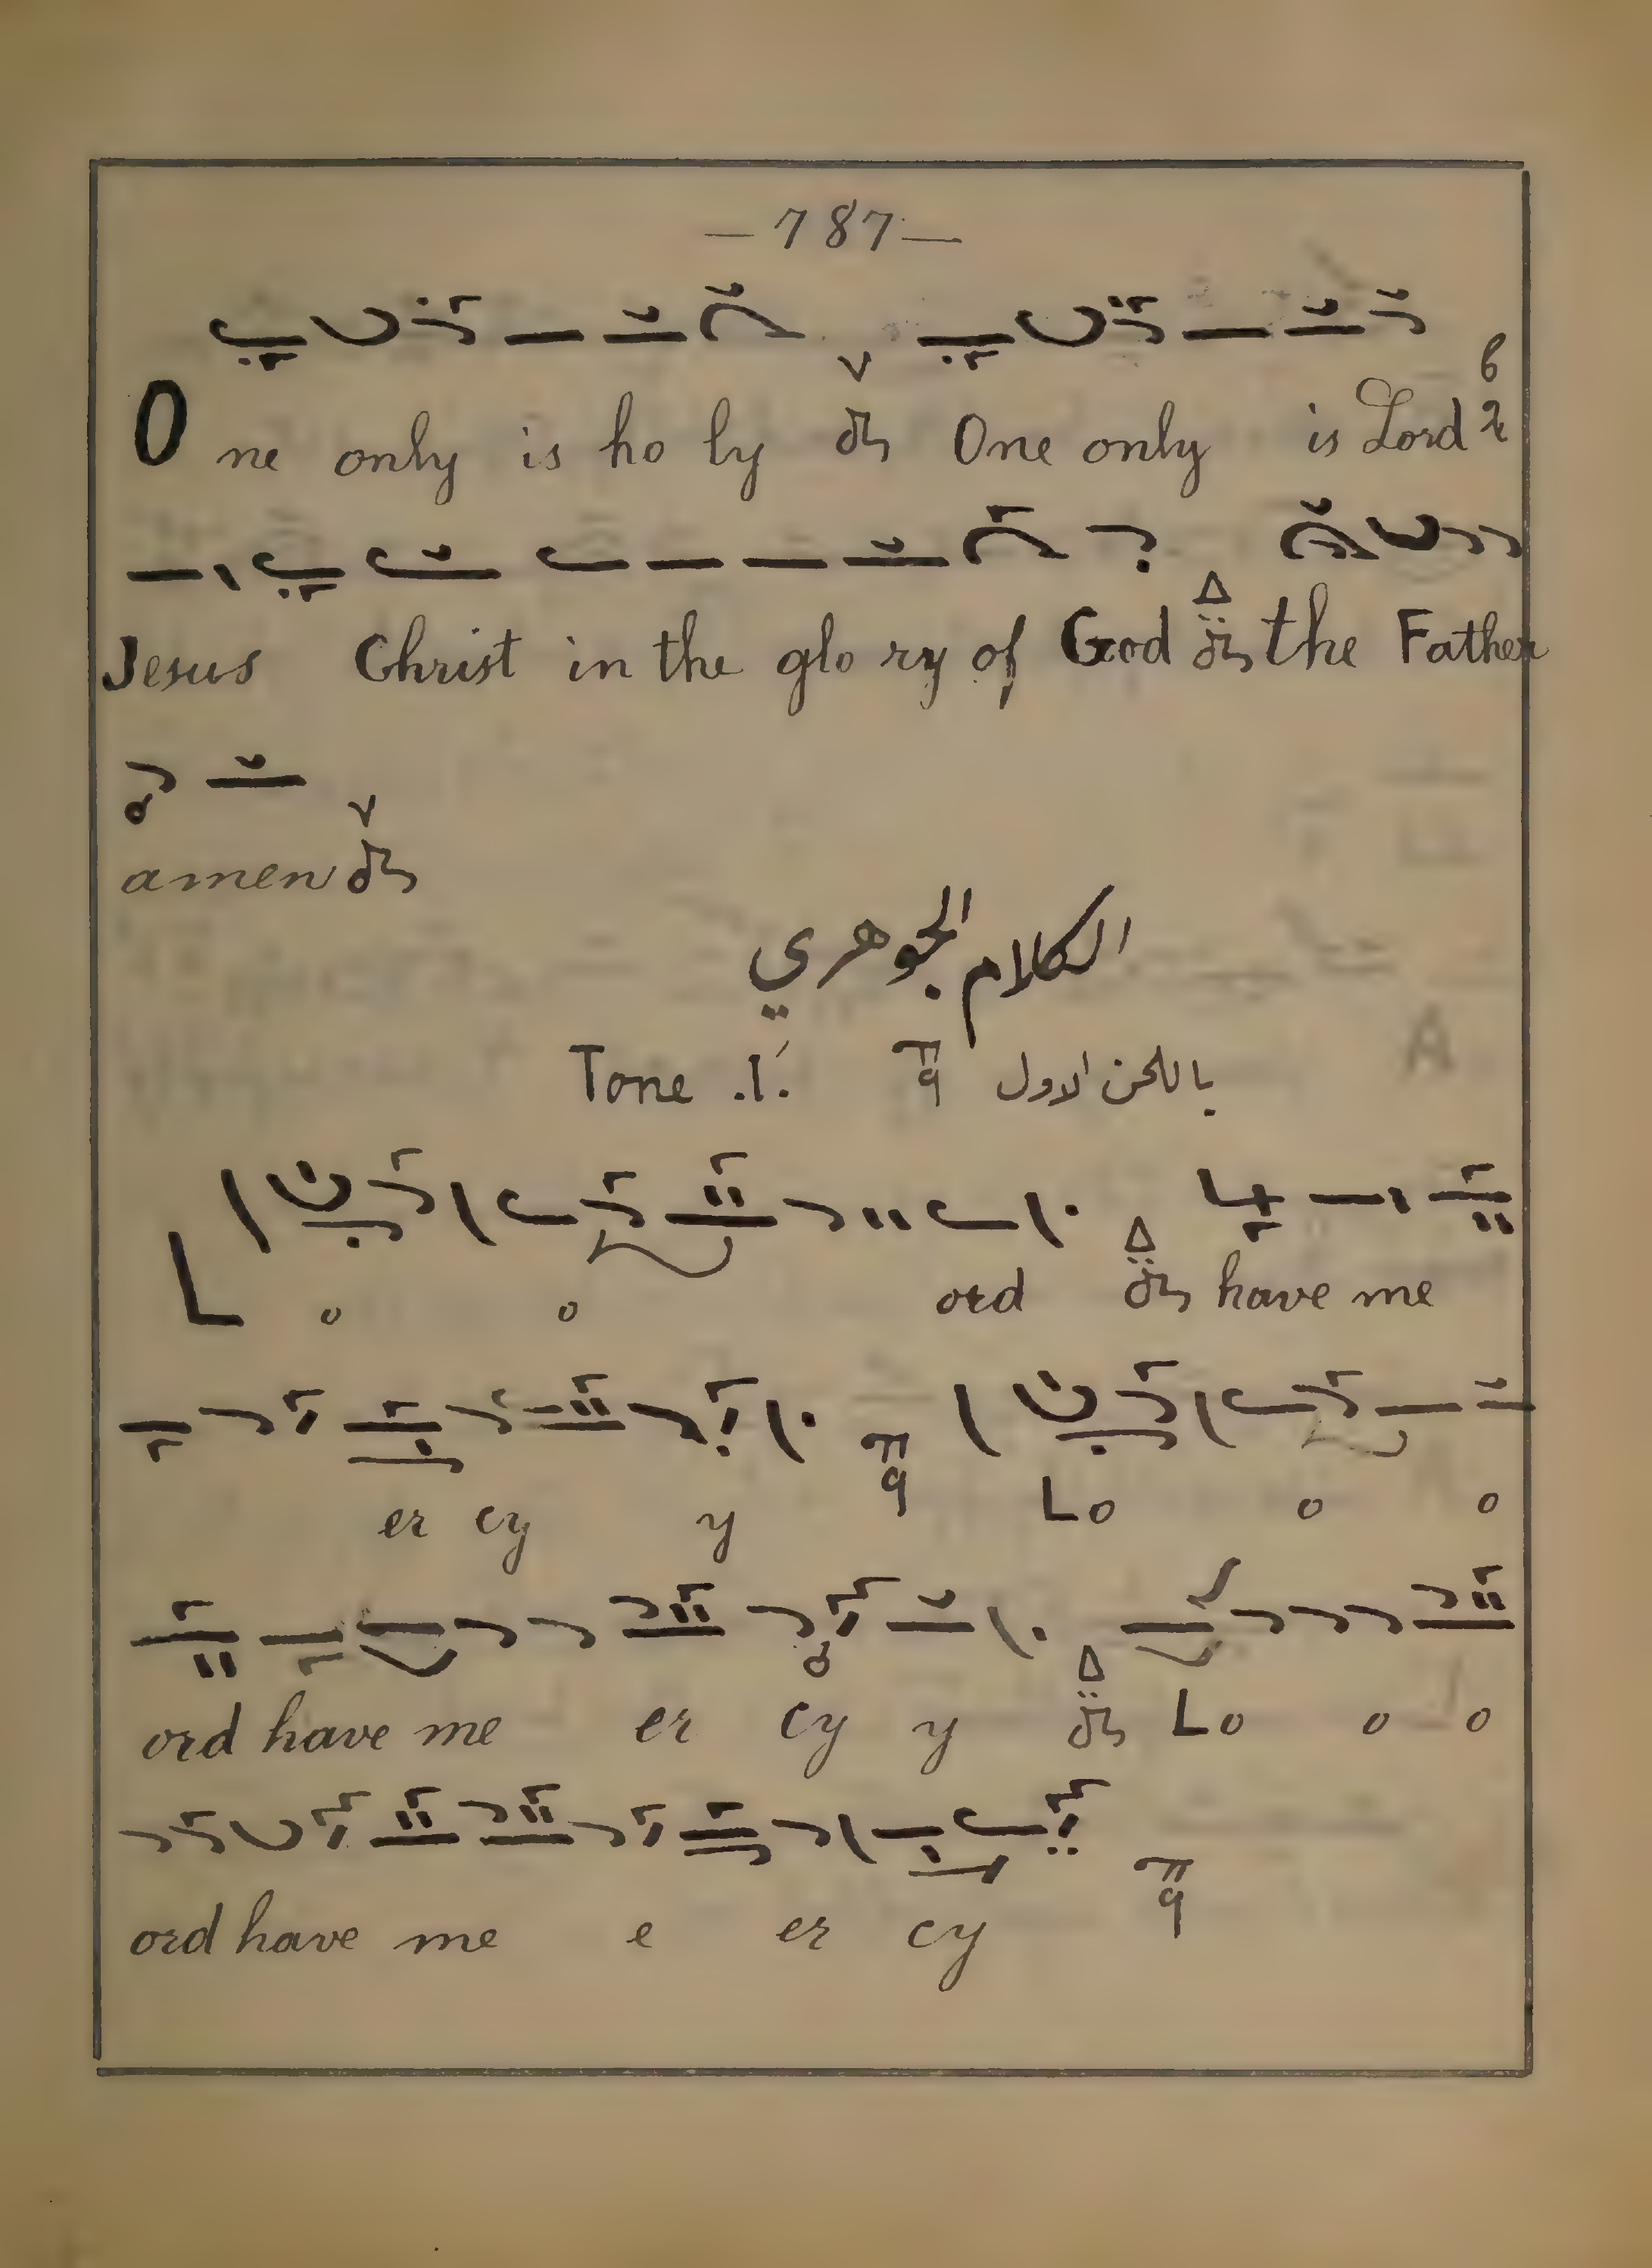 —787—
One only is ho ly One only is Lord
Jesus Christ in the glo ry of God the Father
amen
الكلام الجوهري
Tone .1. باللحن الاول
L o o ord have me
er cy y Lo o o
ord have me er cy y Lo o o
ord have me e er cy